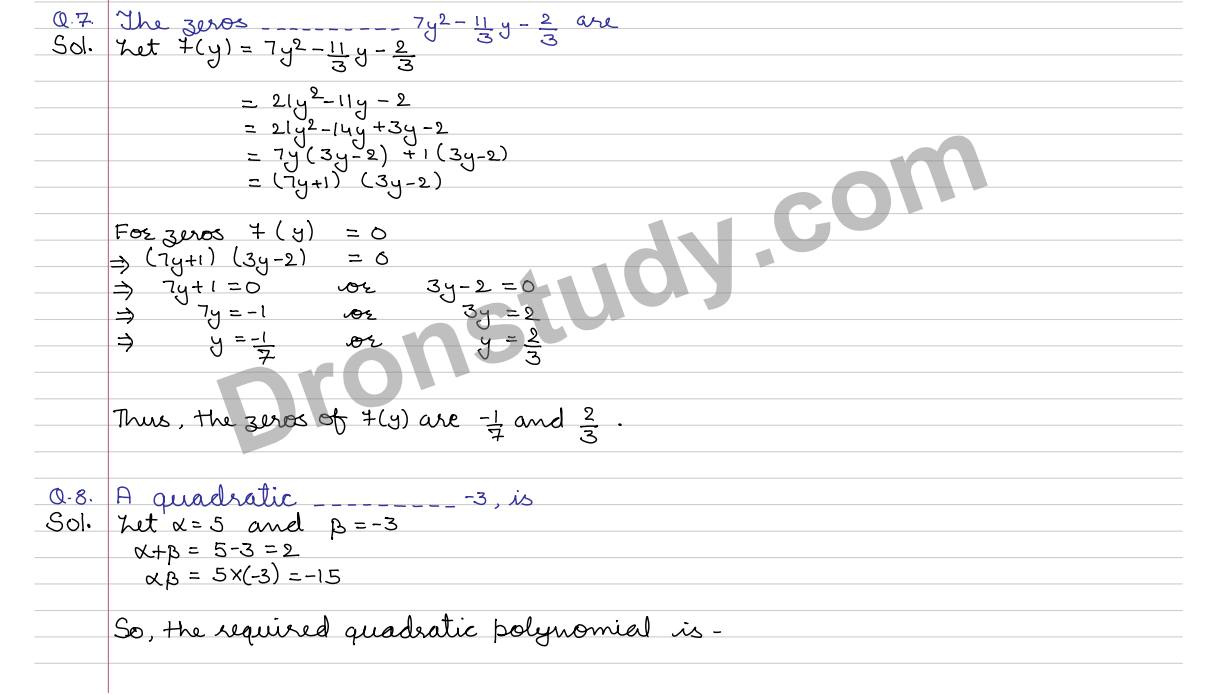 Q.7. The zeros ---------- 7y² - 11/3 y - 2/3 are
Sol. Let f(y) = 7y² - 11/3 y - 2/3
= 21y² - 11y - 2
= 21y² - 14y + 3y - 2
= 7y(3y-2) + 1(3y-2)
= (7y+1) (3y-2)
For zeros f(y) = 0
⇒ (7y+1) (3y-2) = 0
⇒ 7y+1 = 0 or 3y-2 = 0
⇒ 7y = -1 or 3y = 2
⇒ y = -1/7 or y = 2/3
Thus, the zeros of f(y) are -1/7 and 2/3 .
Q.8. A quadratic --------- -3, is
Sol. Let α = 5 and β = -3
α+β = 5-3 = 2
αβ = 5×(-3) = -15
So, the required quadratic polynomial is -
Dronstudy.com